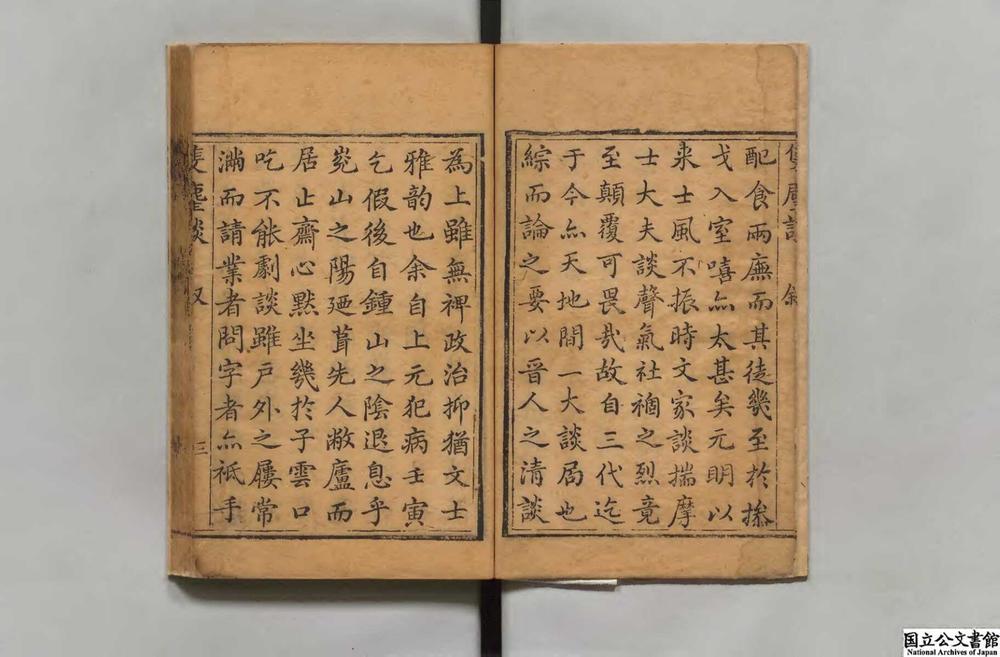 配食兩廡而其徒幾至於操
戈入室嘻亦太甚矣元明以
來士風不振時文家談揣摩
士大夫談聲氣社禍之烈竟
至顛覆可畏哉故自三代迄
于今亦天地間一大談局也
綜而論之要以晉人之清談
為上雖無裨政治抑猶文士
雅韵也余自上元犯病壬寅
乞假後自鍾山之陰退息乎
堯山之陽廼葺先人敝廬而
居止齋心默坐幾於子雲口
吃不能劇談雖戶外之屨常
滿而請業者問字者亦祗手
雙麈談 叙 三
国立公文書館
National Archives of Japan